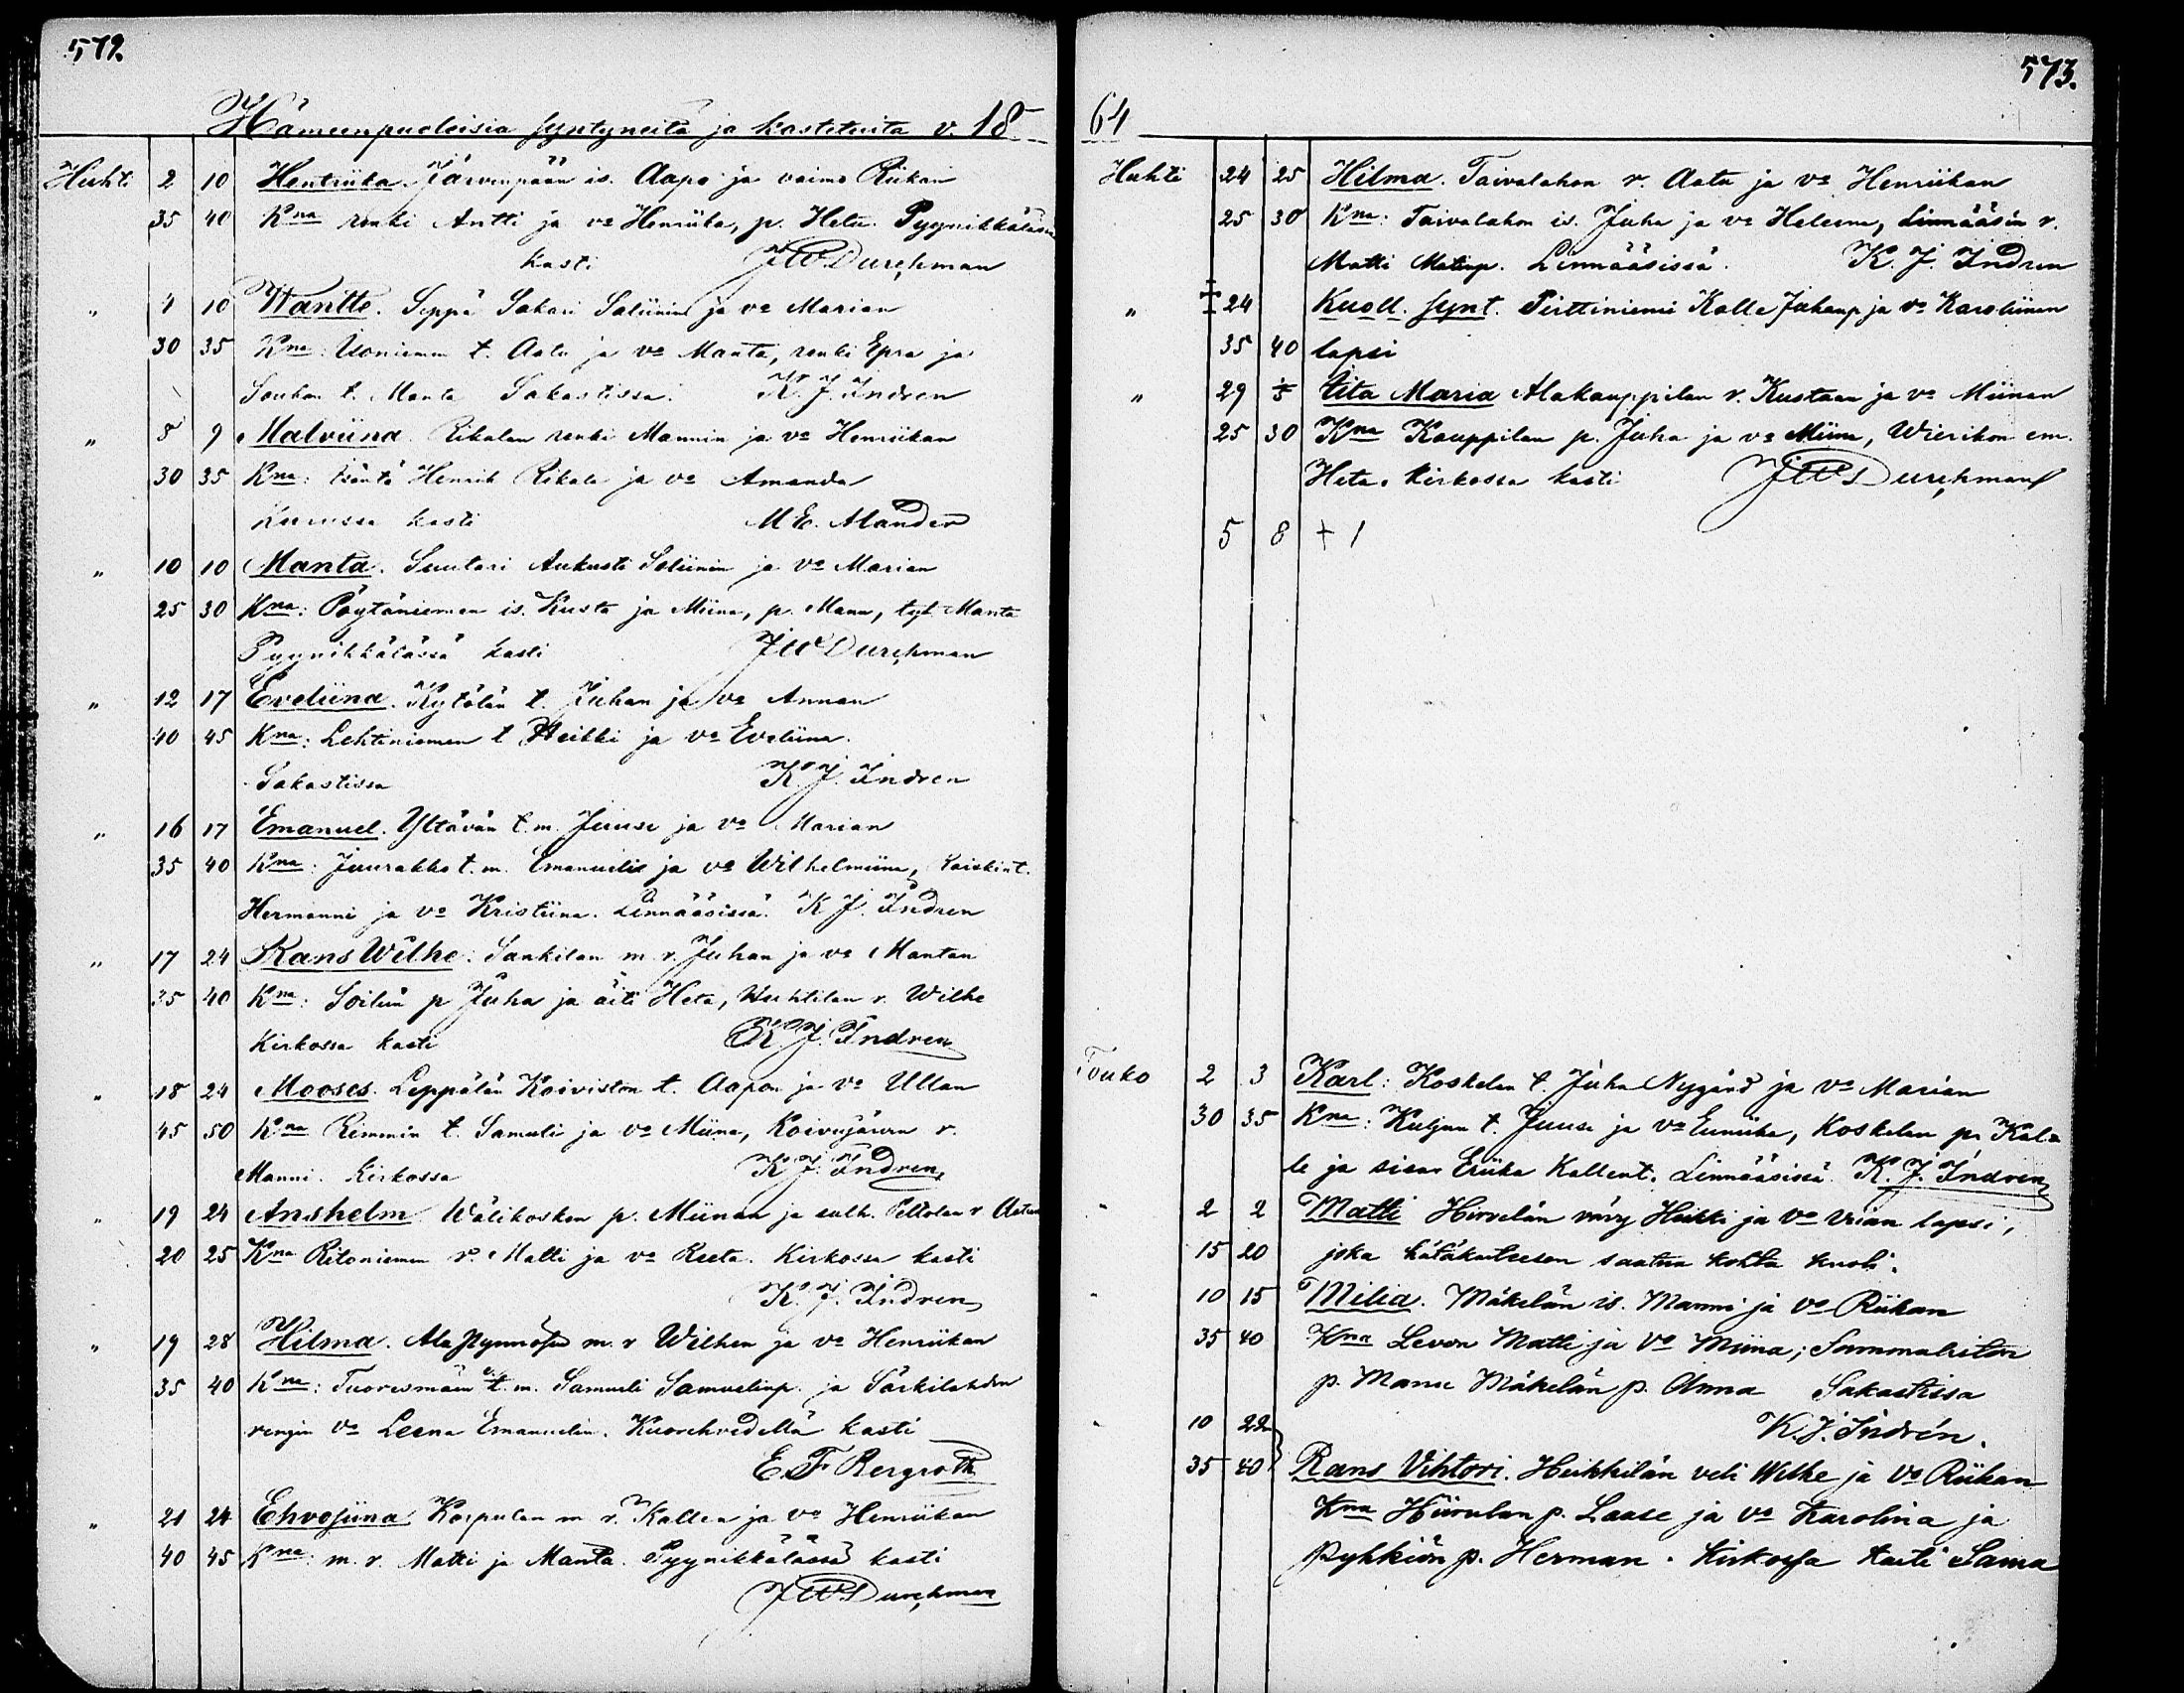 572.
Hämeenpuoleisia syntyneitä ja kastetuita v. 18
Huhti 2 10 Hentriika Järvenpään is. Aapo ja vaimo Riikan
35 40 Kna renki Antti ja va Henriika, p. Heta. Pyynikkälässä
kasti JW Durchman
" 4 10 Wantte. Seppä Sakari Saliinin ja va Marian
30 35 Kna: Uoniemen t. Aatu ja va Manta, renki Epra ja
Souhan t. Manta Sakastissa. K. J. Indren
" 5 9 Malviina. Rikalan renki Mannin ja va Henriikan
30 35 Kna: isäntä Henrik Rikala ja va Amanda
Kurussa kasti M. E. Alander
" 10 10 Manta. Suutari Aukusti Soliinin ja va Marian
25 30 Kna: Pöytäniemen is. Kusta ja Miina, p. Manu, tyt. Manta
Pyynikkälässä kasti JW Durchman
" 12 17 Eveliina. Kytölän t. Juhan ja va Annan
40 45 Kna: Lehtiniemen t Heikki ja va Eveliina.
Sakastissa K. J. Indren
" 16 17 Emanuel. Yltävän t.m. Juuse ja va Marian
35 40 Kna: Juurakko t.m. Emanueli ja va Wilhelmiina,
Hermanni ja va Kristiina. Linnääsissä. K J. Indren
" 17 24 Rans Wilhe: Sankilan m. r. Juhan ja va Mantan
35 40 Kna: Soilun p Juha ja äiti Heta, Huhtilan r. Wilhe
Kirkossa kasti K. J. Indren
" 18 24 Mooses. Leppälän Koiviston t. Aapon ja va Ullan
45 50 Kna Rimmin t. Samuli ja va Miina, Koivujärven r.
Manni. Kirkossa K J. Indren
" 19 24 Anshelm. Wälikosken p. Miinan ja sulh. Peltolan r Aatun
20 25 Kna Ritoniemen r. Matti ja va Reeta. Kirkossa kasti
K. J. Indren
" 19 28 Hilma. Ala m. r Wilhen ja va Henriikan
35 40 Kna: Tuoresmäen t. m. Samueli Samuelinp. ja Särkilahden
rengin va Leena Emanuelin. Kuorehvedellä kasti
E. F. Bergroth
" 21 24 Ehvosiina Korpulan m r. Kallen ja va Henriikan
40 45 Kna: m. r. Matti ja Manta. Pyynikkälässä kasti
JW Durchman
573.
64
Huhti 24 25 Hilma. Taivalahon r. Aatu ja va Henriikan
25 30 Kna: Taivalahon is. Juha ja va Heleena, Linnääsin r.
Matti Matinp. Linnääsissä. K. J. Indren
" + 24 Kuoll. synt. Pirttiniemi Kalle Juhanp ja va Karoliinan
35 40 lapsi
" 29 1/5 Tita Maria Alakauppilan r. Kustaan ja va Miinan
25 30 Kna Kauppilan p. Juha ja va Miina, Wierikon em.
Heta. Kirkossa kasti JW Durchman
5 8 + 1
Touko 2 3 Karl: Koskelan t. Juha Nygård ja va Marian
30 35 Kna: Kuljun t. Juuse ja va Euniika, Koskelan p. Kal=
le ja sisar Eriika Kallent. Linnääsissä. K. J. Indren
" 2 2 Matti Hirvelän Heikki ja va lapsi,
15 20 joka hätäkasteesen saatua kohta kuoli.
" 10 15 Milia. Mäkelän is. Manni ja va Riikan
35 40 Kna Levon Matti ja va Miina; Sammaliston
p. Manu Mäkelän p. Anna Sakastissa
" 10 22 K. J. Indrén.
35 40 Rans Vihtori. Heikkilän veli Wilhe ja va Riikan
Kna Hiirulan p. Laase ja va Karolina ja
Pyhkiön p. Herman. Kirkossa kasti Sama